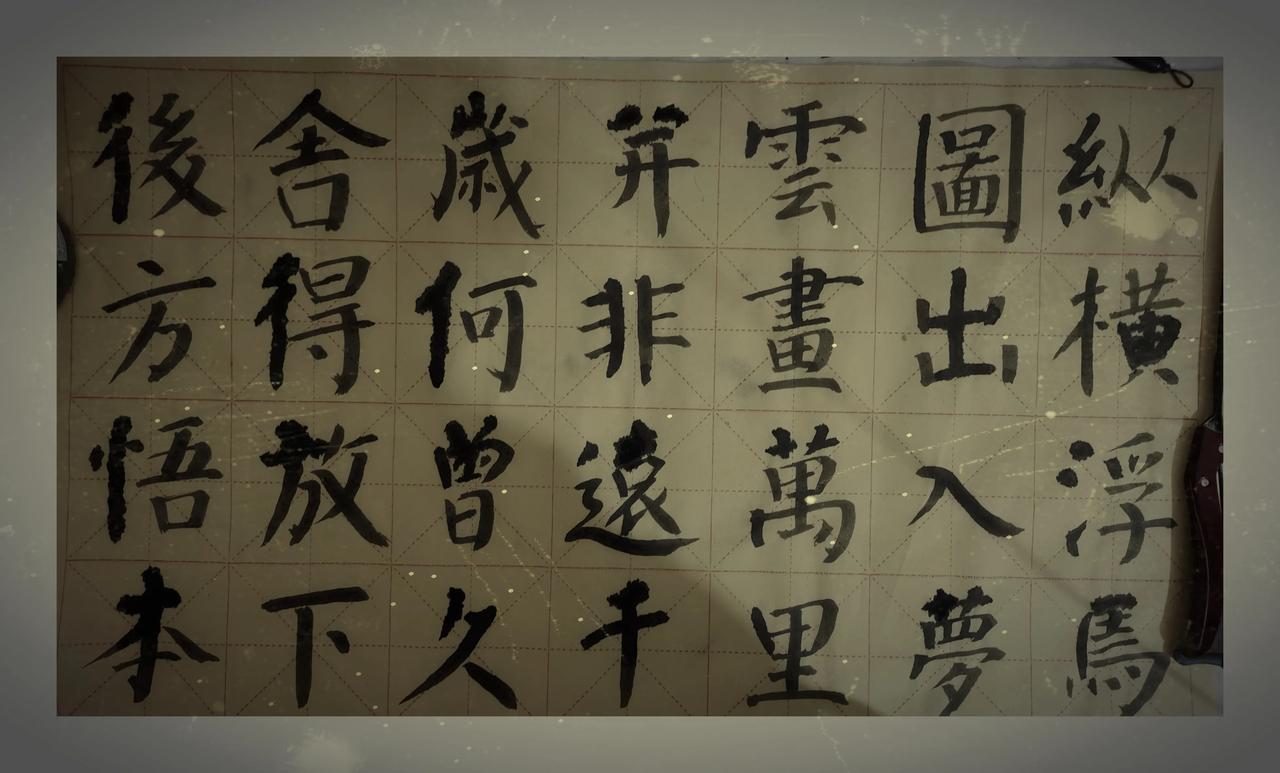 縱橫浮馬
圖出入夢
雲畫萬里
並非遠千
歲何曾久
舍得放下
後方悟本